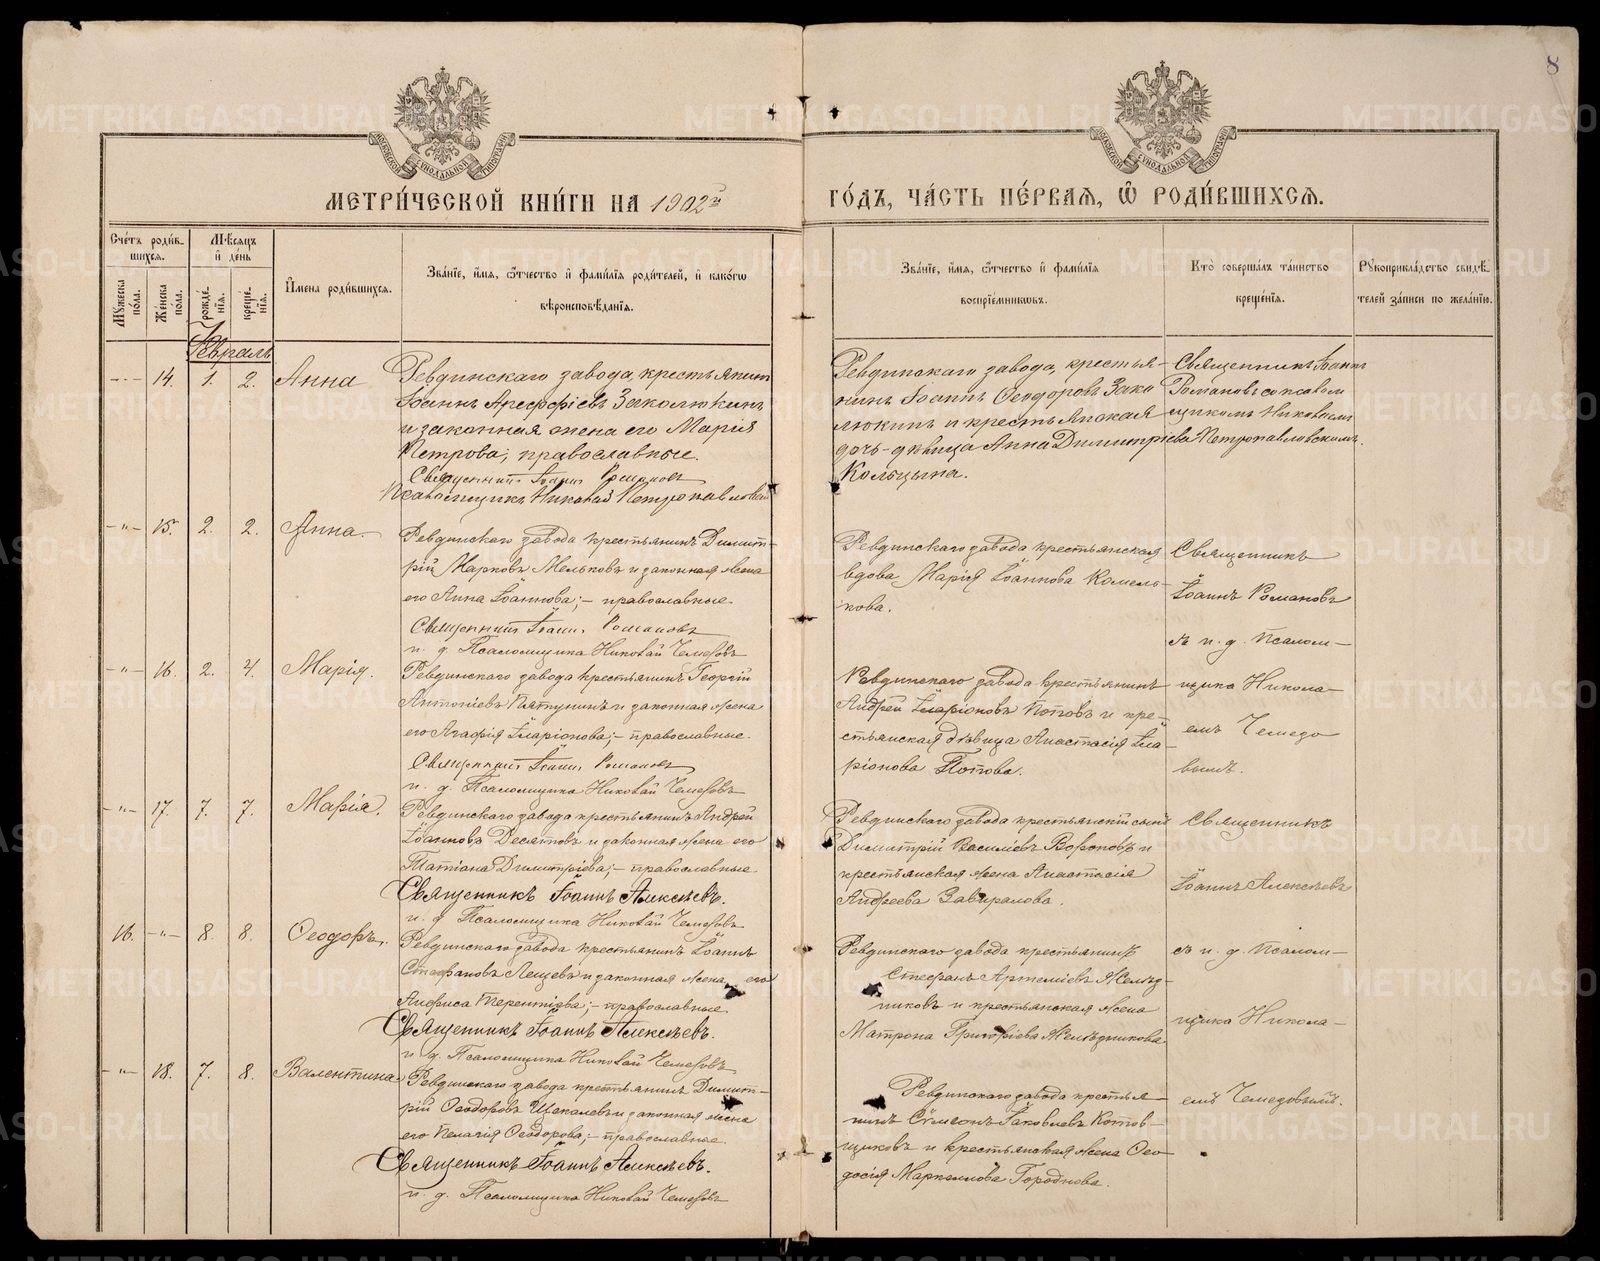 8
МЕТРИ́ЧЕСКОЙ КНИ́ГИ НА 1902й
ГО́ДЪ, ЧА́СТЬ ПЕ́РВАЯ, Ѡ РОДИ́ВШИХСЯ.
Сче́тъ роди́в-
шихся.
Му́жеска по́ла.
Же́нска по́ла.
Мѣ́сяцъ и де́нь
рожде́нія.
креще́нія.
Имена роди́вшихся.
Зва́ніе, и́мя, о́тчество и фами́лія роди́телей, и како́гѡ
вѣроисповѣ́данія.
Зва́ніе, и́мя, о́тчество и фами́лія
воспріе́мникѡвъ.
Кто̀ соверша́лъ та́инство
креще́нія.
Рꙋкоприкла́дство свидѣ́-
телей за́писи по жела́нію.
Февраль
14. 1. 2. Анна
Ревдинскаго завода, крестьянинъ
Іоаннъ Ареффіевъ Заколюкинъ
и законная жена его Марія
Петрова, православные.
Священникъ Іоаннъ Романовъ
Псаломщикъ Николай Петропавловскій
Ревдинскаго завода, крестья-
нинъ Іоаннъ Ѳеодоровъ Зако
люкинъ и крестьянская
дочь-дѣвица Анна Димитріева
Кольцына.
Священникъ Іоаннъ
Романовъ съ псалом
щикомъ Николаемъ
Петропавловскимъ.
-"- 15. 2. 2. Анна.
Ревдинскаго завода крестьянинъ Димит-
рій Марковъ Мельковъ и законная жена
его Анна Іоаннова; - православные.
Священникъ Іоаннъ Романовъ
и. д. Псаломщика Николай Чемедовъ
Ревдинскаго завода крестьянская
вдова Марія Іоаннова Комель-
кова.
Священникъ
Іоаннъ Романовъ
съ и. д. Псалом-
-"- 16. 2. 4. Марія.
Ревдинскаго завода крестьянинъ Георгій
Антоніевъ Пятунинъ и законная жена
его Агафія Иларіонова; - православные.
Священникъ Іоаннъ Романовъ
и. д. Псаломщика Николай Чемедовъ
Ревдинскаго завода крестьянинъ
Андрей Иларіоновъ Поповъ и кре-
стьянская дѣвица Анастасія Ила-
ріонова Попова.
щика Никола-
емъ Чемедо
вымъ.
-"- 17. 7. 7. Марія.
Ревдинскаго завода крестьянинъ Андрей
Іоанновъ Десятовъ и законная жена его
Татіана Димитріева; - православные
Священникъ Іоаннъ Алексѣевъ.
и. д. Псаломщика Николай Чемедовъ
Ревдинскаго завода крестьянскій сынъ
Димитрій Василіевъ Вороновъ и
крестьянская жена Анастасія
Андреева Завиралова.
Священникъ
Іоаннъ Алексѣевъ
16. -"- 8. 8. Ѳеодоръ.
Ревдинскаго завода крестьянинъ Іоаннъ
Стефановъ Лещевъ и законная жена его
Анфиса Терентіева; - православные
Священникъ Іоаннъ Алексѣевъ.
и. д. Псаломщика Николай Чемедовъ
Ревдинскаго завода крестьянинъ
Стефанъ Артеміевъ Желѣз-
никовъ и крестьянская жена
Матрона Григоріева Желѣзникова.
съ и. д. Псалом-
щика Никола-
-"- 18. 7. 8. Валентина
Ревдинскаго завода крестьянинъ Димит-
рій Ѳеодоровъ Щекалевъ и законная жена
его Пелагія Ѳеодорова; - православные.
Священникъ Іоаннъ Алексѣевъ.
и. д. Псаломщика Николай Чемедовъ
Ревдинскаго завода крестья-
нинъ Сѵмеонъ Іаковлевъ Котов-
щиковъ и крестьянская жена Ѳео
досія Маркеллова Городнова.
емъ Чемедовымъ.
METRIKI.GASO-URAL.RU